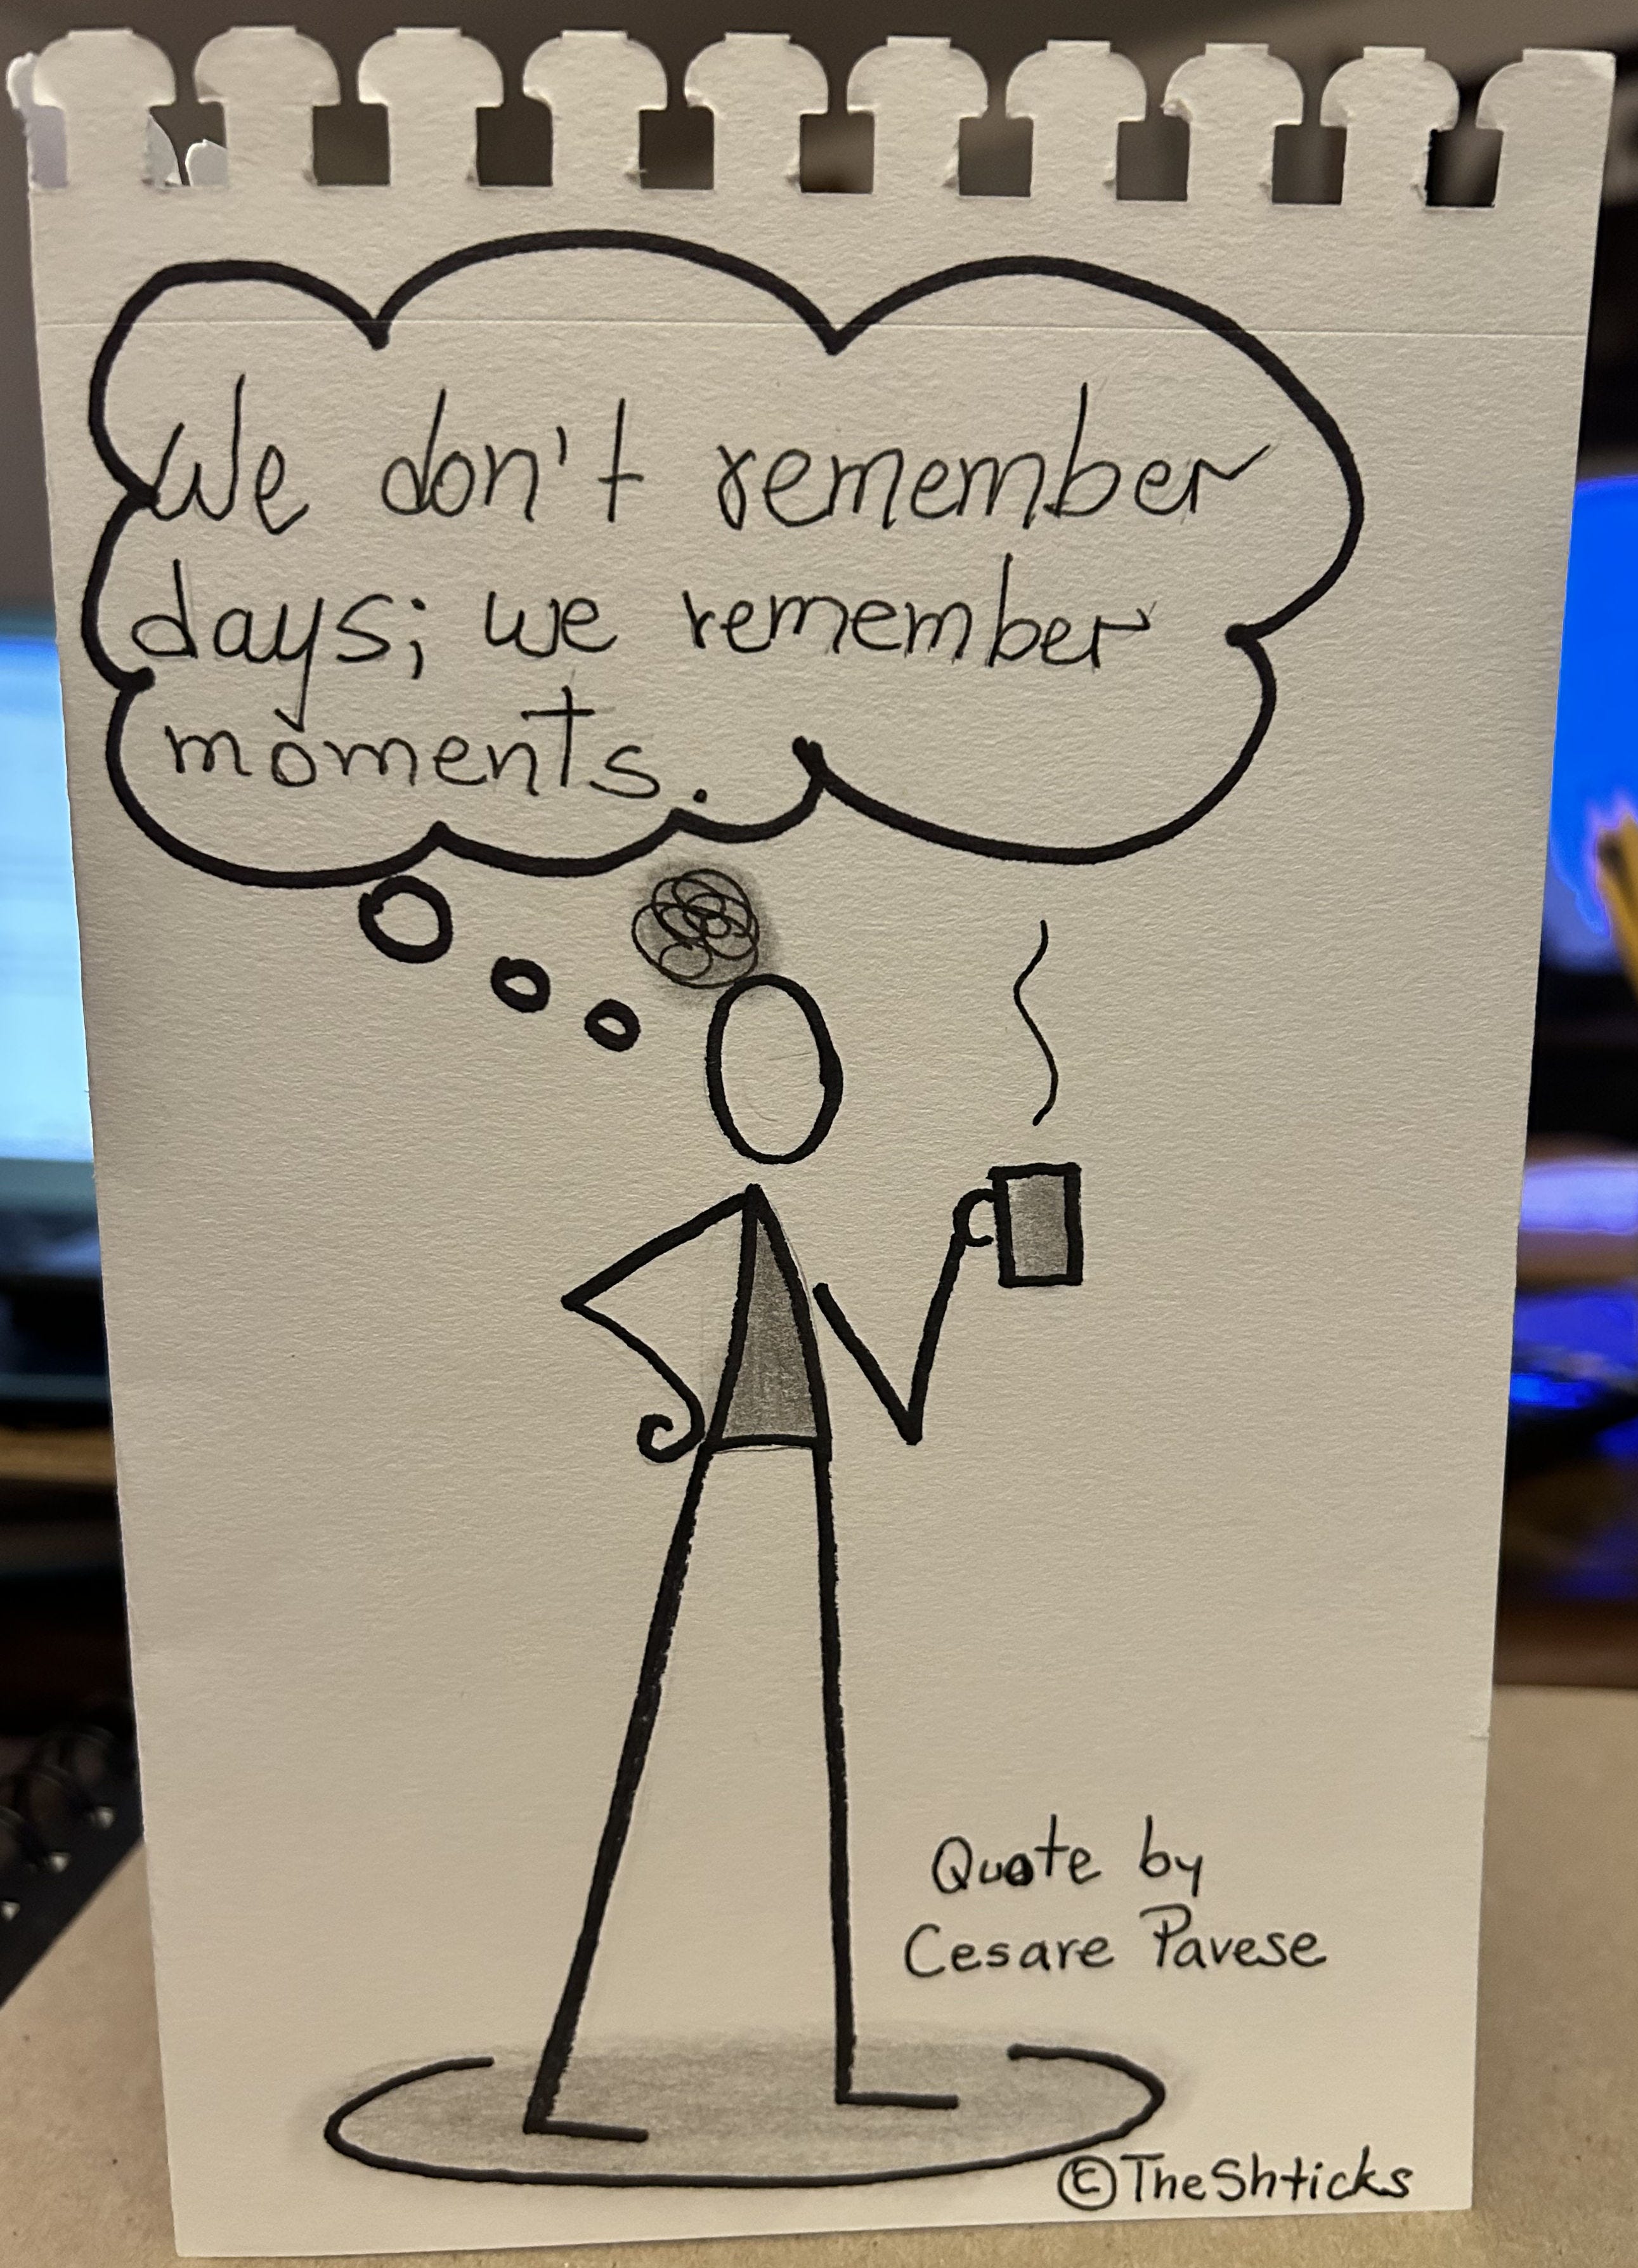 We don't remember
days; we remember
moments.
Quote by
Cesare Pavese
©TheShticks